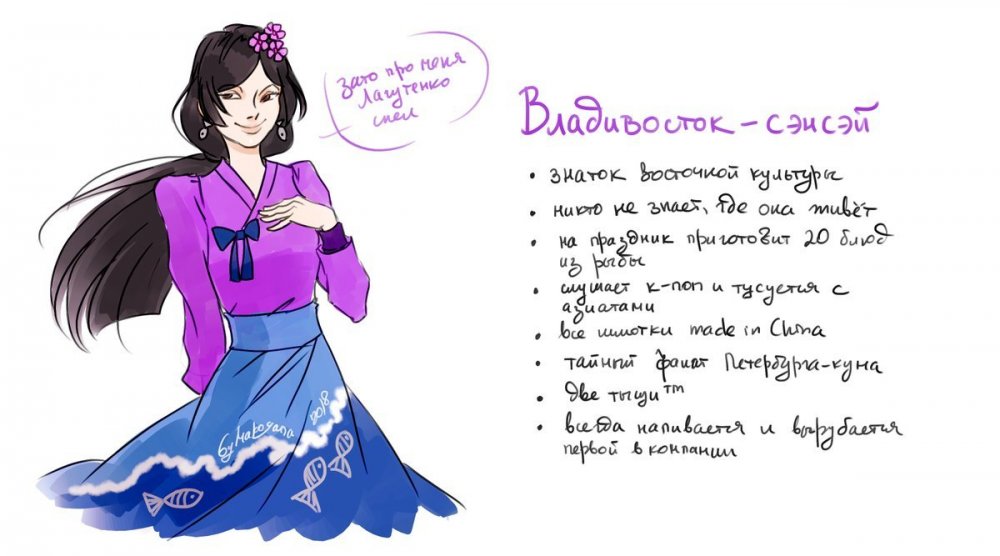 зато про меня
Лагутенко
спел
Владивосток – сэнсэй
• знаток восточной культуры
• никто не знает, где она живёт
• на праздник приготовит 20 блюд
из рыбы
• слушает k-поп и тусуется с
азиатами
• все шмотки made in China
• тайный фанат Петербурга-куна
• две тыщи™
• всегда напивается и вырубается
первой в компании
by Makosana 2018